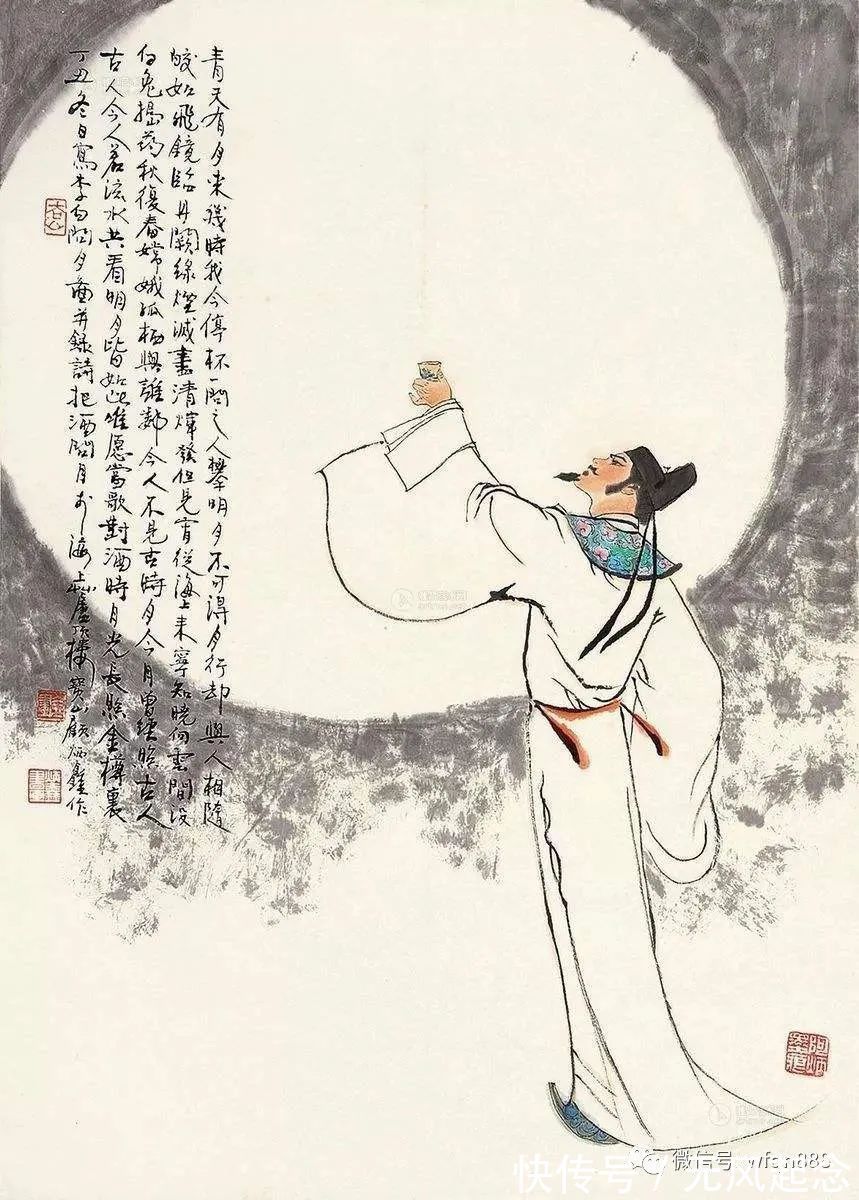 青天有月来幾時我今停杯一問之人攀明月不可得月行却與人相隨
皎如飛鏡臨丹闕緑煙滅盡清煇發但見宵從海上来寧知曉向雲間没
白兔搗药秋復春嫦娥孤栖與誰鄰今人不見古時月今月曾經照古人
古人今人若流水共看明月皆如此唯愿當歌對酒時月光長照金樽裏
丁丑冬日寫李白問月圖并録詩把酒問月于海上蘆樓寶山顧炳鑫作
微信号: wfsn888
快传号 / 无风起念